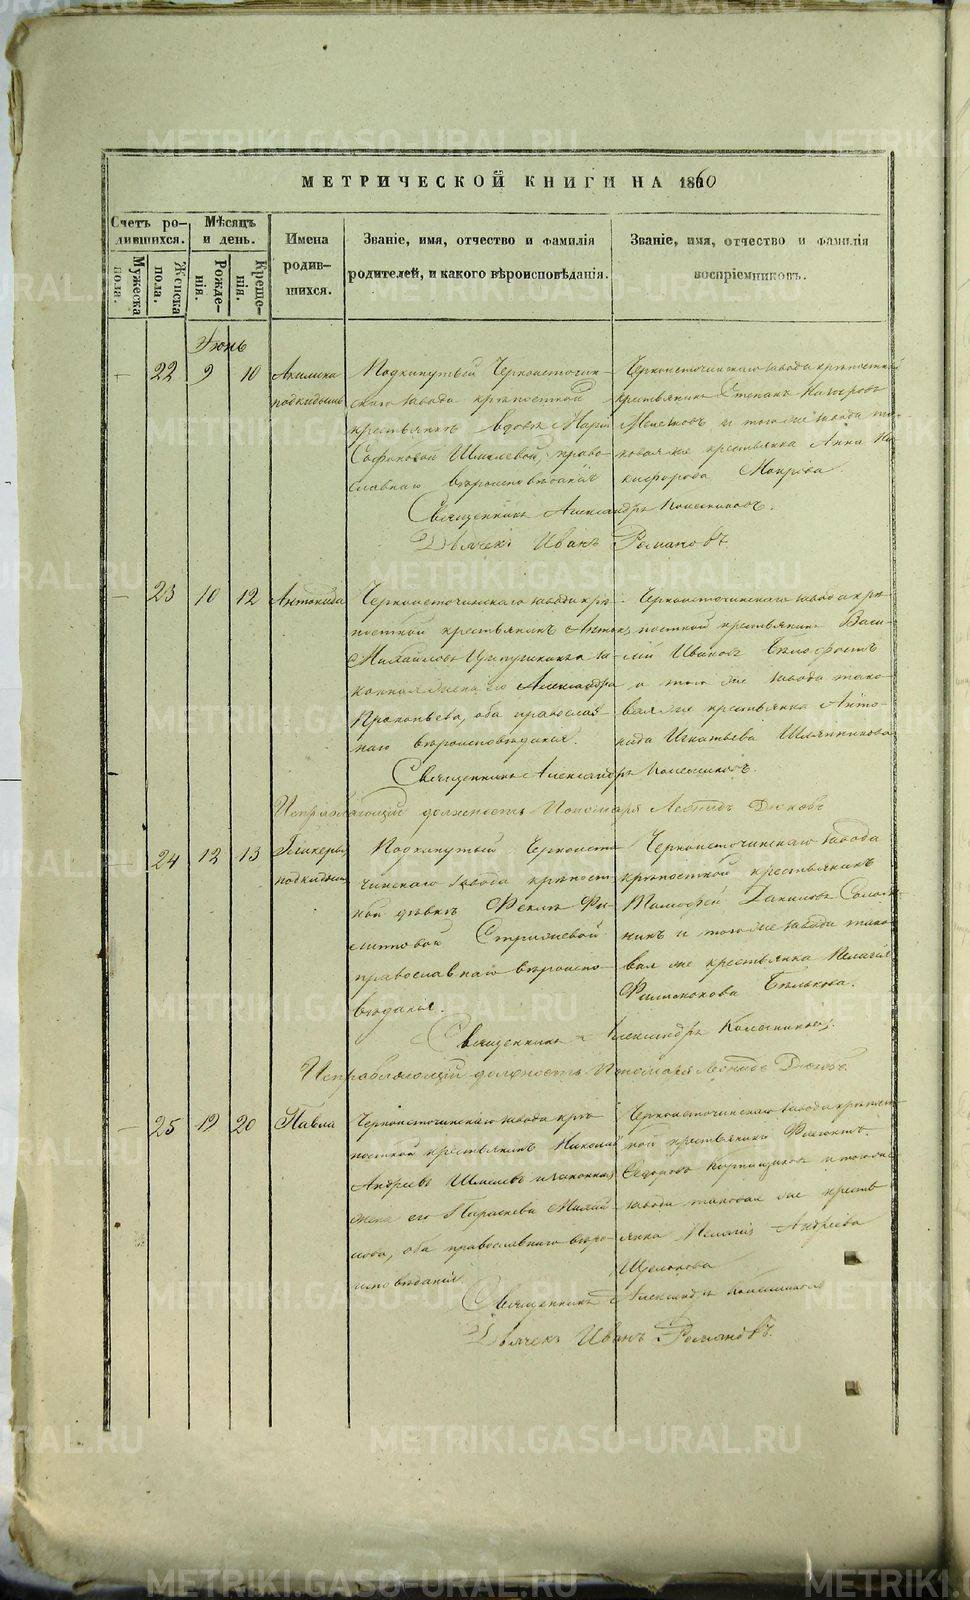 МЕТРИЧЕСКОЙ КНИГИ НА 1860
Счетъ ро-
дившихся.
Мужеска
пола.
Женска
пола.
Мѣсяцъ
и день.
Рожде-
нія.
Креще-
нія.
Имена
родив-
шихся.
Званіе, имя, отчество и фамилія
родителей, и какого вѣроисповѣданія.
Званіе, имя, отчество и фамилія
воспріемниковъ.
Іюнь
22 9 10
Акилина
подкидышъ
Подкинутый Черноисточин-
скаго завода крѣпостной
крестьянкѣ вдовѣ Марѣѣ
Софоновой Шмелевой, право-
славнаго вѣроисповѣданія
Черноисточинскаго завода крѣпостной
крестьянинъ Степанъ
и того же завода та-
ковая же крестьянка Анна Ни-
кифорова
Священникъ Александръ Колесниковъ.
Дьячекъ Иванъ Романовъ.
23 10 12
Антонида
Черноисточинскаго завода крѣ-
постной крестьянинъ Антонъ
Михайловъ и за-
конная жена его Александра
Прокопьева, оба православ-
наго вѣроисповѣданія.
Черноисточинскаго завода крѣ-
постной крестьянинъ Васи-
лій Ивановъ
и того же завода тако-
вая же крестьянка Анто-
нида Игнатьева Шляпникова
Священникъ Александръ Колесниковъ.
Исправляющій должность Пономаря Леонидъ Дюковъ
24 12 13
Гликерья
подкидышъ
Подкинутый Черноисто-
чинскаго завода крѣпост-
ной дѣвкѣ Феклѣ Фи-
липовой Стрижевой
православнаго вѣроиспо-
вѣданія.
Черноисточинскаго завода
крѣпостной крестьянинъ
Тимофей Даниловъ
и того же завода тако-
вая же крестьянка Пелагія
Филимонова Бѣлькова.
Священникъ Александръ Колесниковъ.
Исправляющій должность Пономаря Леонидъ Дюковъ.
25 19 20
Павла
Черноисточинскаго завода крѣ-
постной крестьянинъ Николай
Андреевъ Шмелевъ и законная
жена его Параскева
оба православнаго вѣро-
исповѣданія.
Черноисточинскаго завода крѣпост-
ной крестьянинъ
Ѳедоровъ и того же
завода таковая же кресть-
янка Пелагія Андреева
Щелокова
Священникъ Александръ Колесниковъ
Дьячекъ Иванъ Романовъ.
METRIKI.GASO-URAL.RU